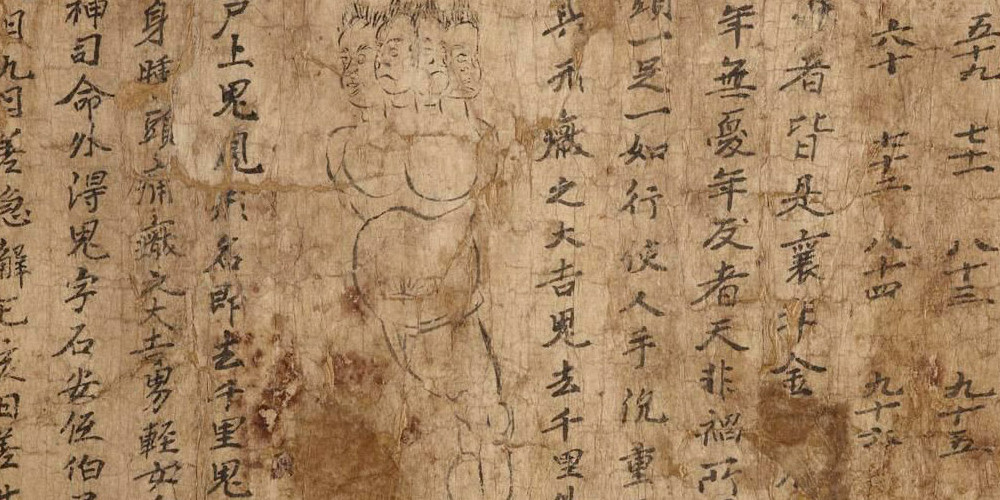 五十九 七十一 八十三 九十五
六十 七十二 八十四 九十六
者皆是襄非金
年無憂年反者天非禍所
頭一足一如行使人手脱重
具形癥之大吉鬼去千里
尸上鬼鬼形名即去千里鬼
身腫頭痛癥之大吉男輕女
神司命外得鬼字石安伍伯
日九日善急解死亥日善